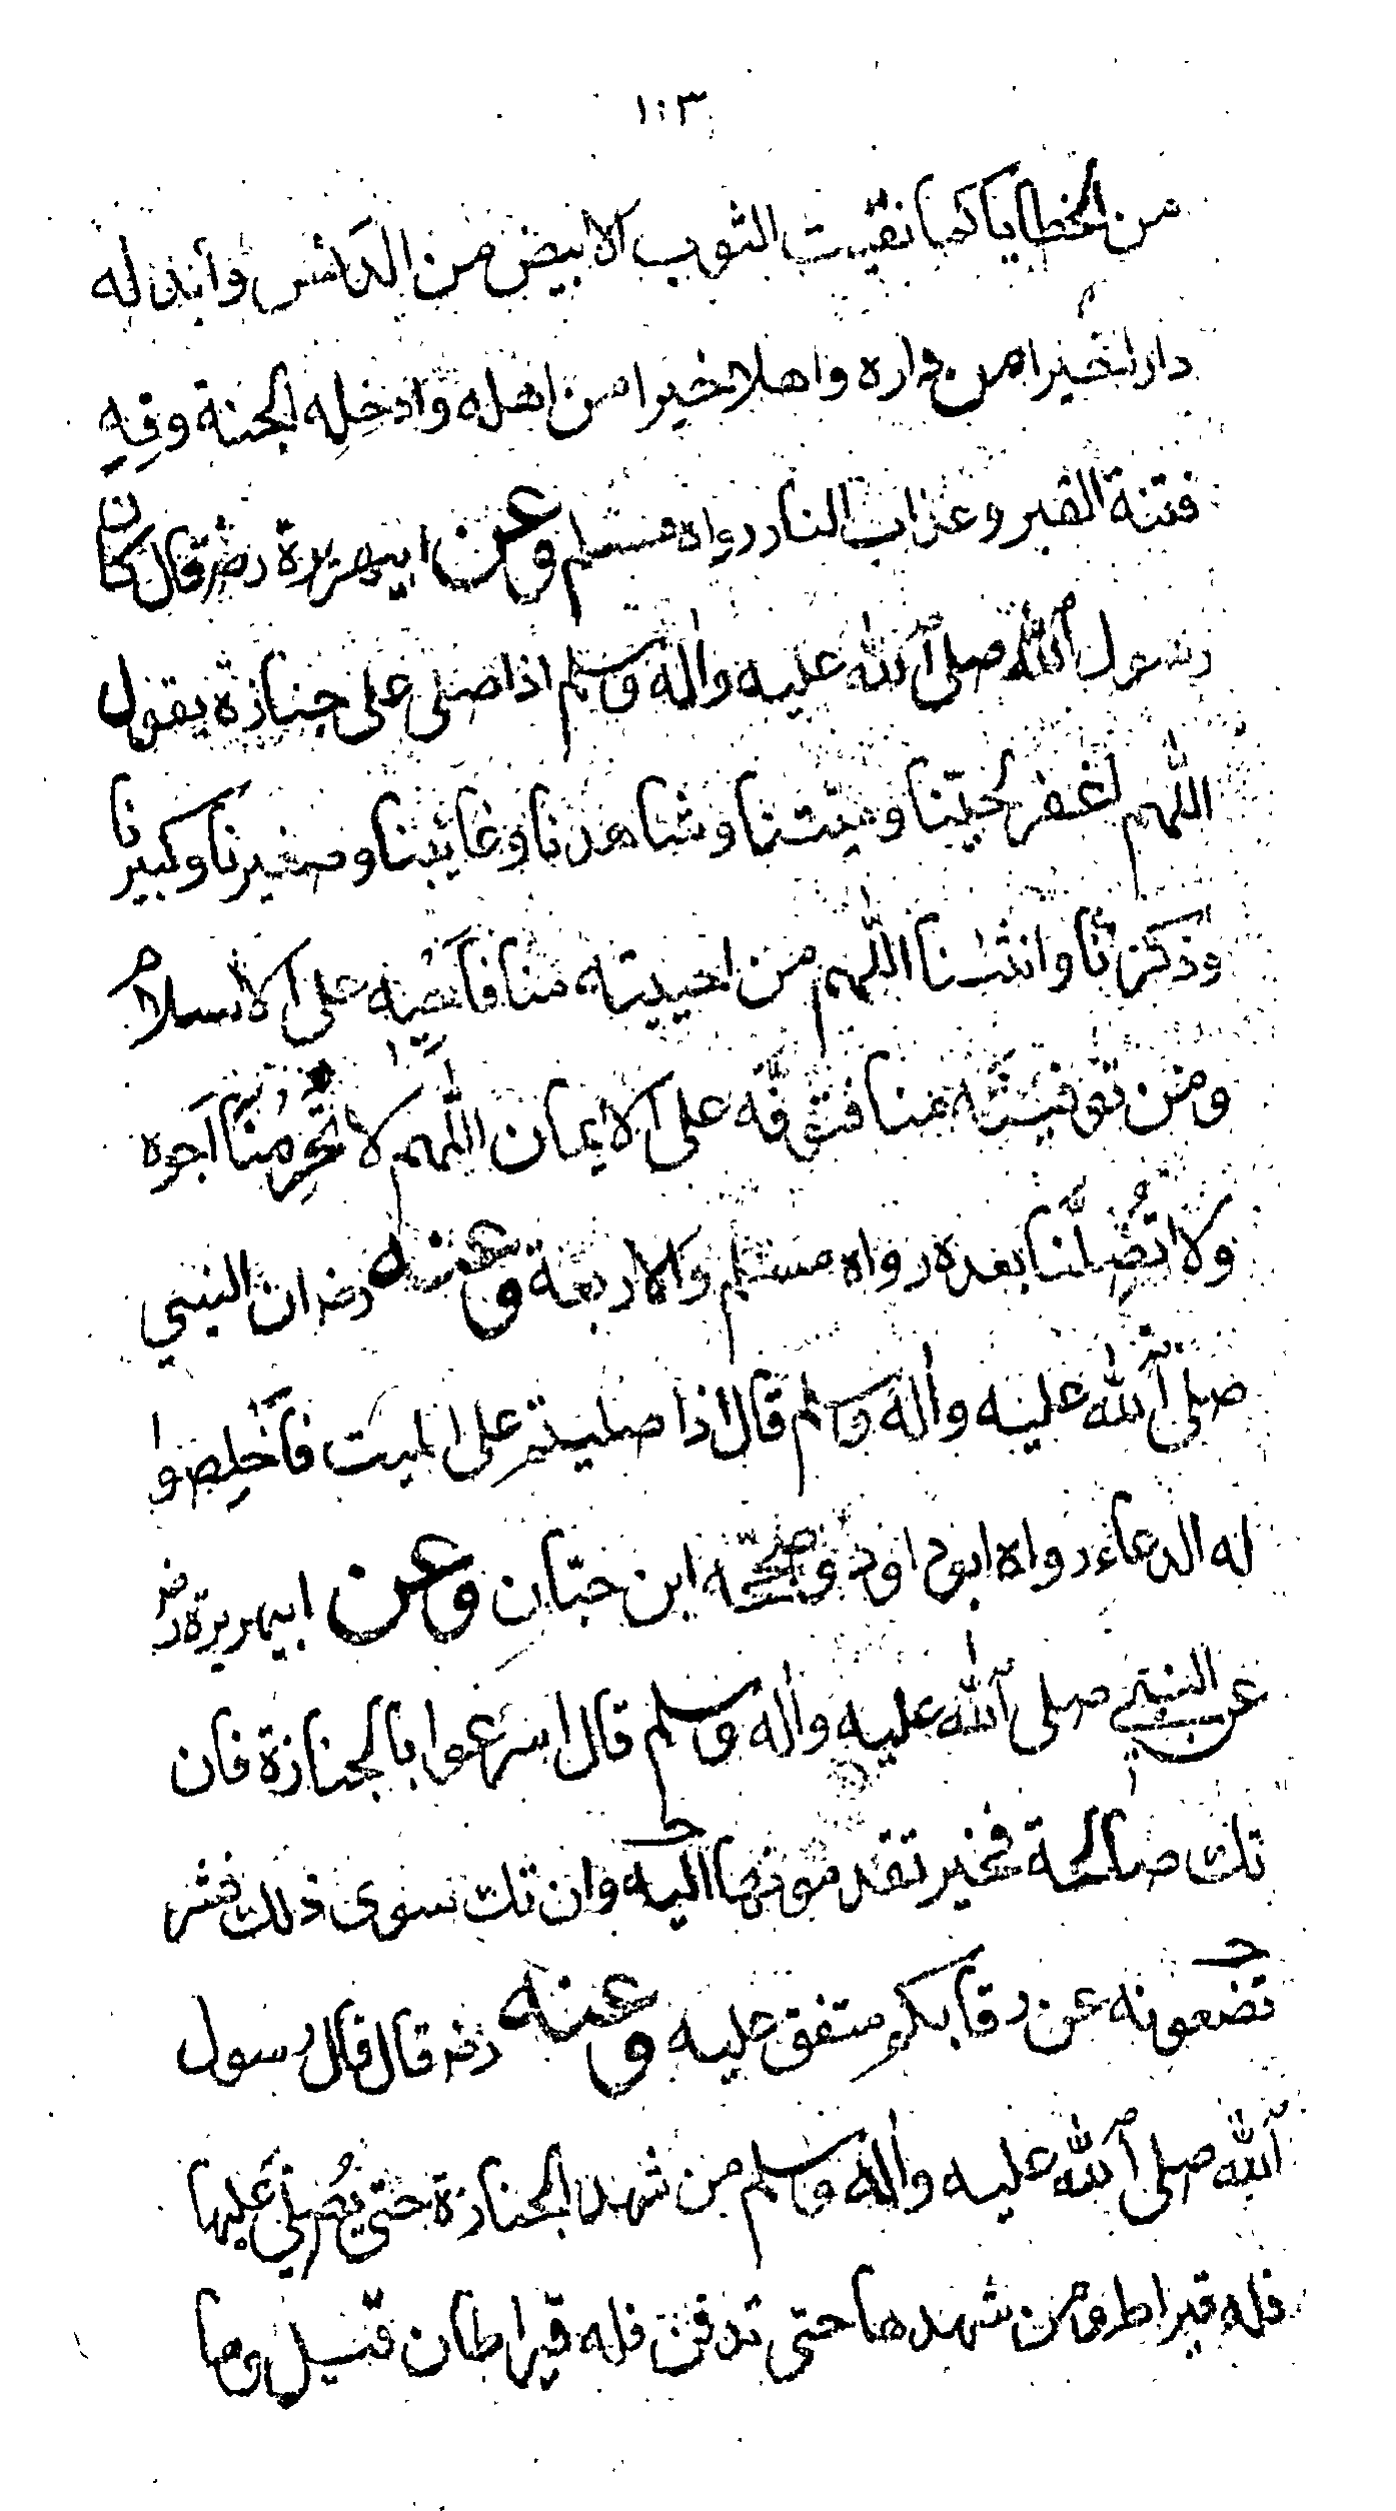 ١٠٣
من الخطايا كما نقيت الثوب الابيض من الدنس وأبدله
دارا خيرا من داره واهلا خيرا من اهله وادخله الجنة وقِهِ
فتنة القبر وعذاب النار رواه مسلم وعن ابيهريرة رضـ قال كان
رسول الله صلى الله عليه واله وسلم اذا صلى على جنازة يقول
اللهم اغفر لحيّنا وميّتنا وشاهدنا وغائبنا وصغيرنا وكبيرنا
وذكرنا وانثٰنا اللهم من احييته منا فاَحيِه على الاسلام
ومن توفيته منا فتوفّه على الايمان اللّهم لا تَحْرِمْنا اجره
ولا تُضِلّنا بعده رواه مسلم والاربعة وعنه رضـ ان النبي
صلى الله عليه واله وسلم قال اذا صليتم على الميت فاَخْلِصوا
له الدعاء رواه ابوداود وصحّحه ابن حبّان وعن ابيهريرة رضـ
عن النبي صلى الله عليه واله وسلم قال اسرعوا بالجنازة فان
تك صالحة فخير تقدمونها اليه وان تك سوى ذلك فشر
تضعونه عن رقابكم متفق عليه وعنه رضـ قال قال رسول
الله صلى الله عليه واله وسلم من شهد الجنازة حتى يُصلّى عليها
فله قيراط ومن شهدها حتى تدفن فله قيراطان قيل وما